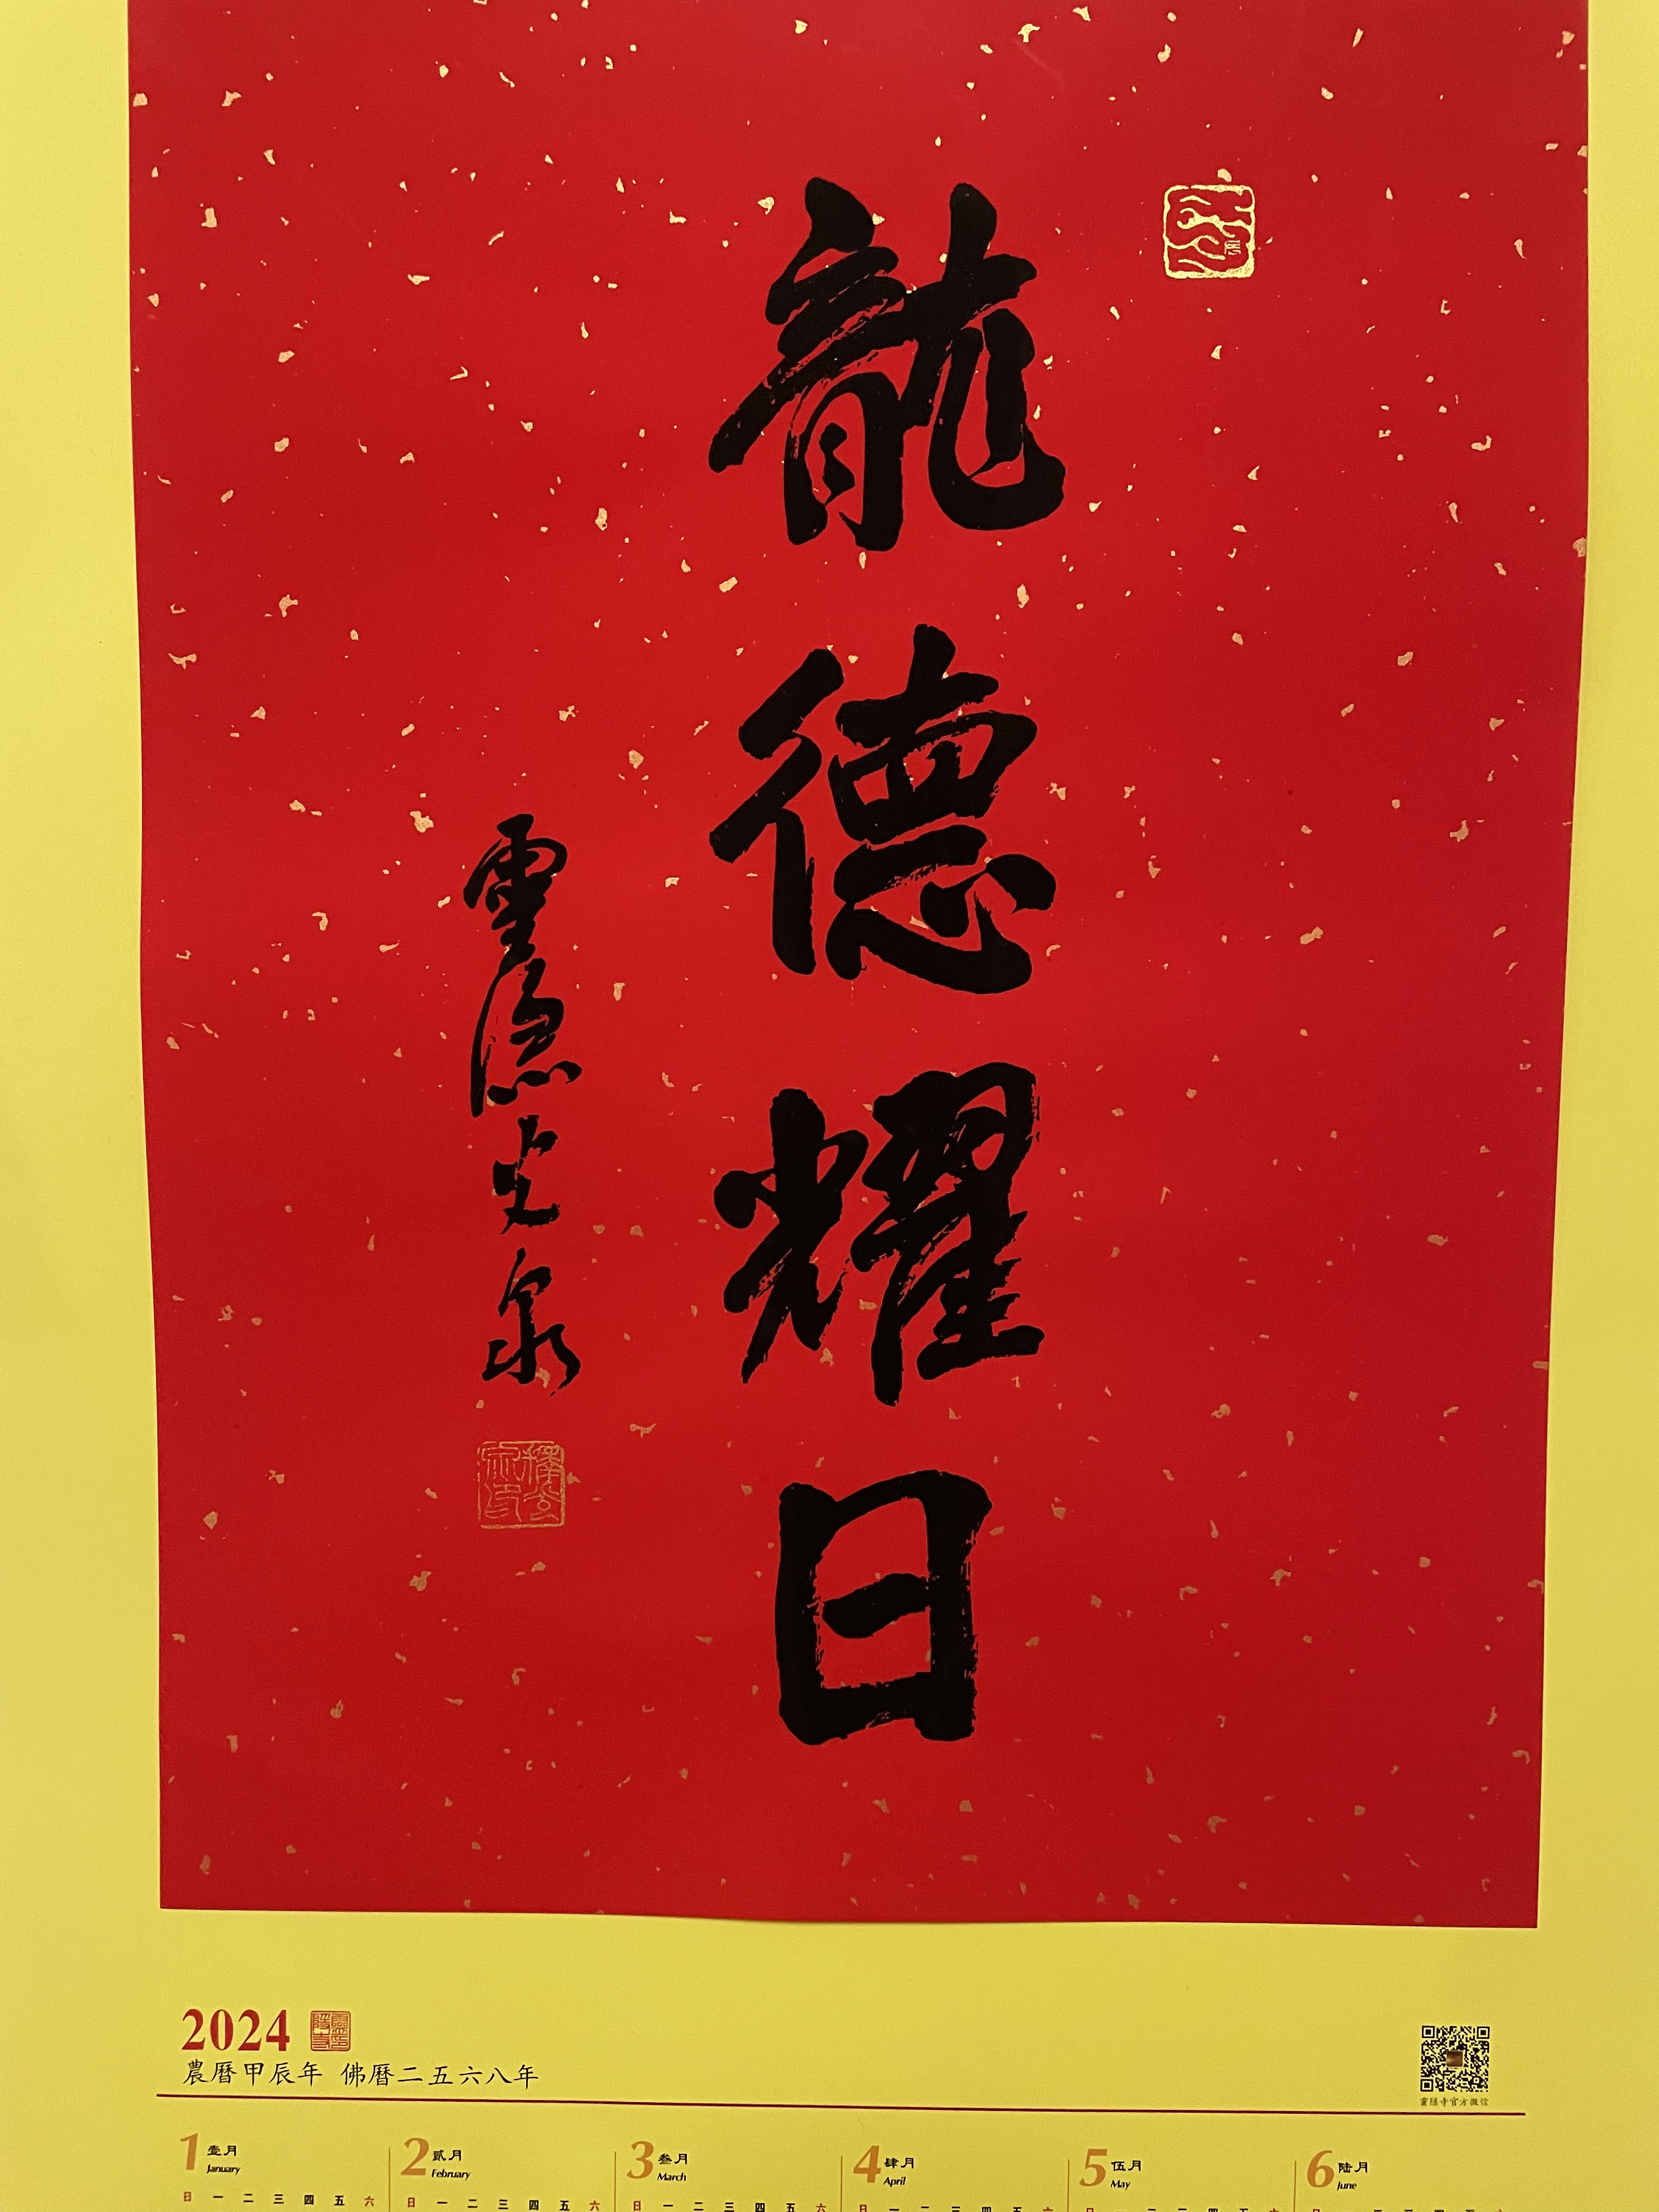 龍德耀日
靈隱光泉
2024
農曆甲辰年 佛曆二五六八年
靈隱寺官方微信
1 壹月 January
日 一 二 三 四 五 六
2 貳月 February
日 一 二 三 四 五 六
3 叁月 March
日 一 二 三 四 五 六
4 肆月 April
日 一 二 三 四 五 六
5 伍月 May
6 陆月 June